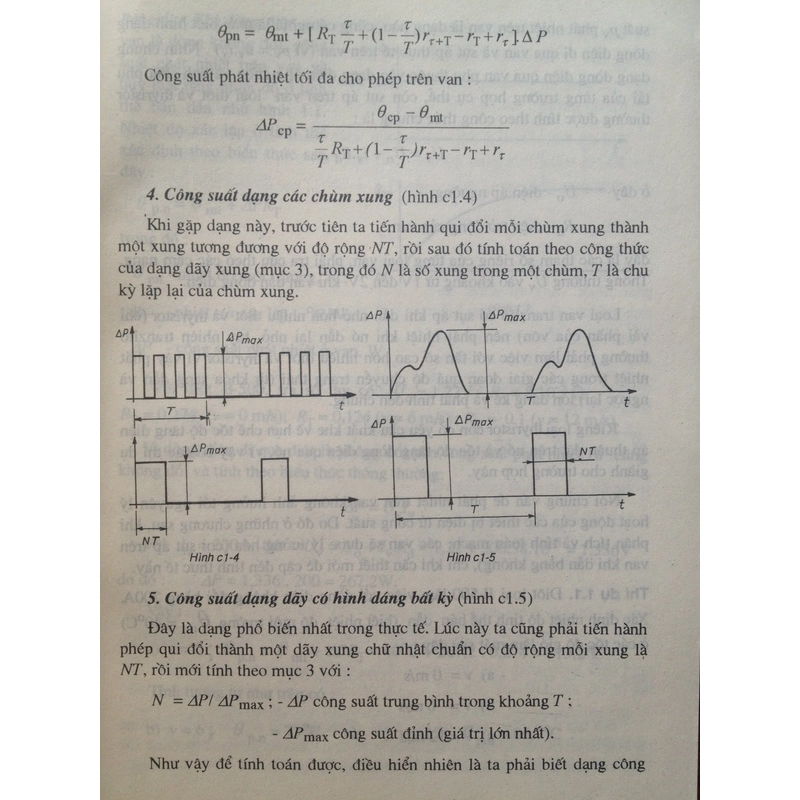 θpn = θmt + [ RT τ/T + (1 – τ/T) rτ+T – rT + rτ ] Δ P
Công suất phát nhiệt tối đa cho phép trên van :
ΔPcp = (θcp – θmt) / (τ/T RT + (1 – τ/T) rτ+T – rT + rτ)
4. Công suất dạng các chùm xung (hình c1.4)
Khi gặp dạng này, trước tiên ta tiến hành qui đổi mỗi chùm xung thành
một xung tương đương với độ rộng NT, rồi sau đó tính toán theo công thức
của dạng dãy xung (mục 3), trong đó N là số xung trong một chùm, T là chu
kỳ lặp lại của chùm xung.
ΔP
ΔPmax
T
t
ΔPmax
NT
t
Hình c1-4
ΔP
ΔPmax
T
t
ΔP
ΔPmax
NT
T
t
Hình c1-5
5. Công suất dạng dãy có hình dáng bất kỳ (hình c1.5)
Đây là dạng phổ biến nhất trong thực tế. Lúc này ta cũng phải tiến hành
phép qui đổi thành một dãy xung chữ nhật chuẩn có độ rộng mỗi xung là
NT, rồi mới tính theo mục 3 với :
N = ΔP/ ΔPmax ; - ΔP công suất trung bình trong khoảng T ;
- ΔPmax công suất đỉnh (giá trị lớn nhất).
Như vậy để tính toán được, điều hiển nhiên là ta phải biết dạng công